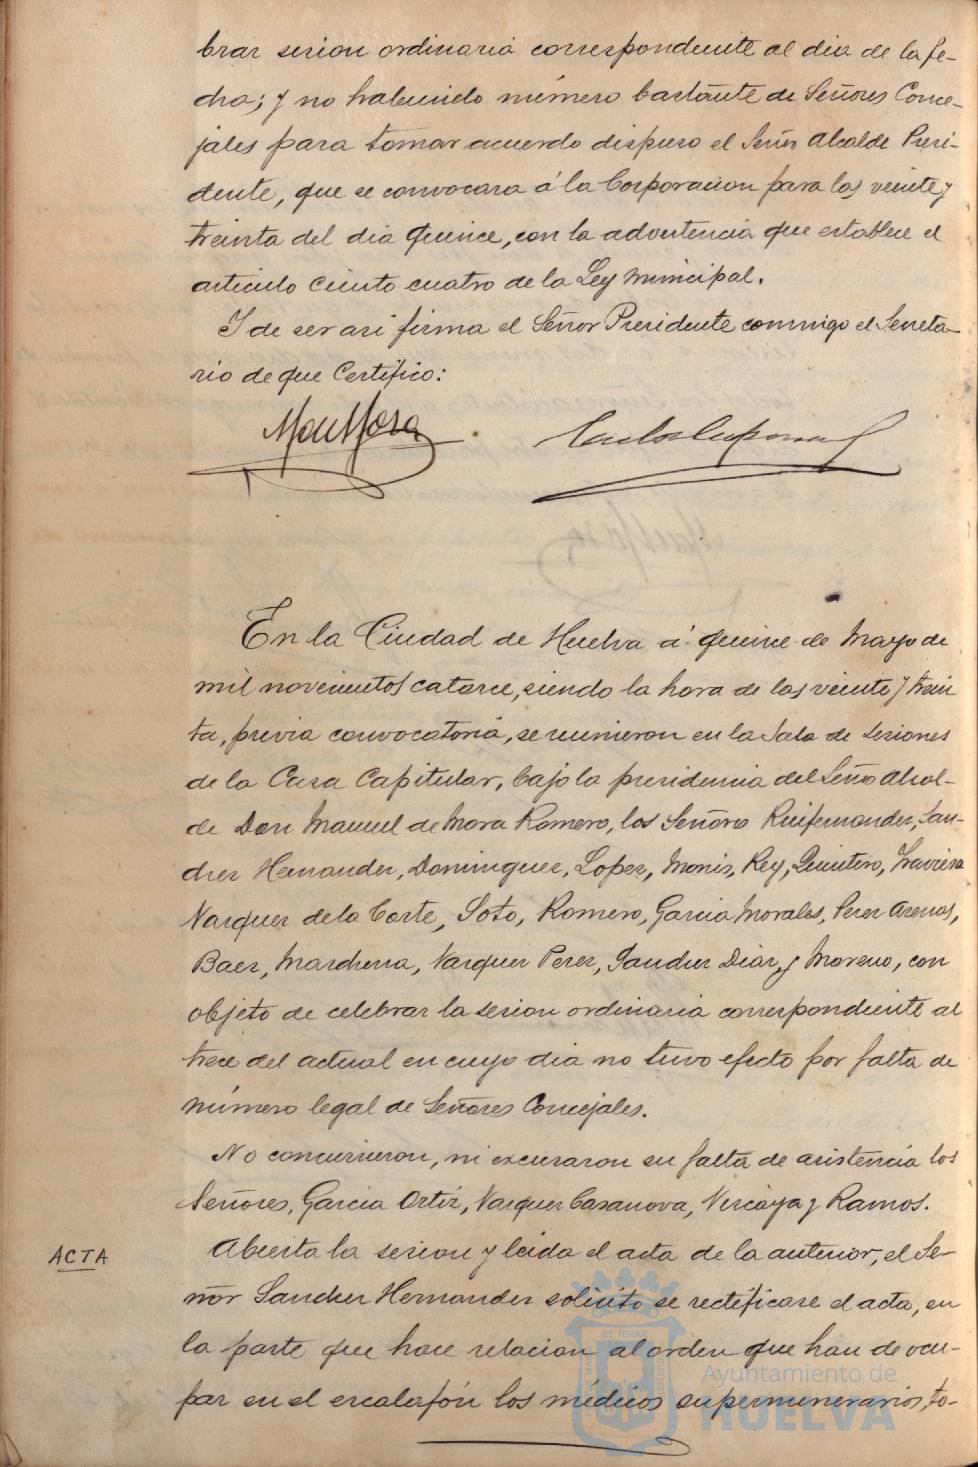 brar sesion ordinaria correspondiente al dia de la fe-
cha; y no habiendo número bastante de Señores Conce-
jales para tomar acuerdo dispuso el Señor Alcalde Presi-
dente, que se convocara á la Corporacion para las veinte y
treinta del dia quince, con la advertencia que establece el
articulo ciento cuatro de la Ley Municipal.
Y de ser asi firma el Señor Presidente conmigo el Secreta-
rio de que Certifico:
En la Ciudad de Huelva á quince de Mayo de
mil novecientos catorce, siendo la hora de las veinte y trein
ta, previa convocatoria, se reunieron en la Sala de Sesiones
de la Casa Capitular, bajo la presidencia del Señor Alcal-
de Don Manuel de Mora Romero, los Señores Ruifernandez, San-
chez Hernandez, Dominguez, Lopez, Monis, Rey, Quintero, Traviesa
Vazquez de la Corte, Soto, Romero, Garcia Morales, Perez Arenas,
Baez, Marchena, Vazquez Perez, Sanchez Diaz, y Moreno, con
objeto de celebrar la sesion ordinaria correspondiente al
trece del actual en cuyo dia no tuvo efecto por falta de
número legal de Señores Concejales.
No concurrieron, ni excusaron su falta de asistencia los
Señores, Garcia Ortiz, Vazquez Casanova, Vizcaya y Ramos.
ACTA
Abierta la sesion y leida el acta de la anterior, el Se-
ñor Sanchez Hernandez solicito se rectificase el acta, en
la parte que hace relacion al orden que han de ocu-
par en el escalafón los médicos supernumerarios, to-
Ayuntamiento de
HUELVA